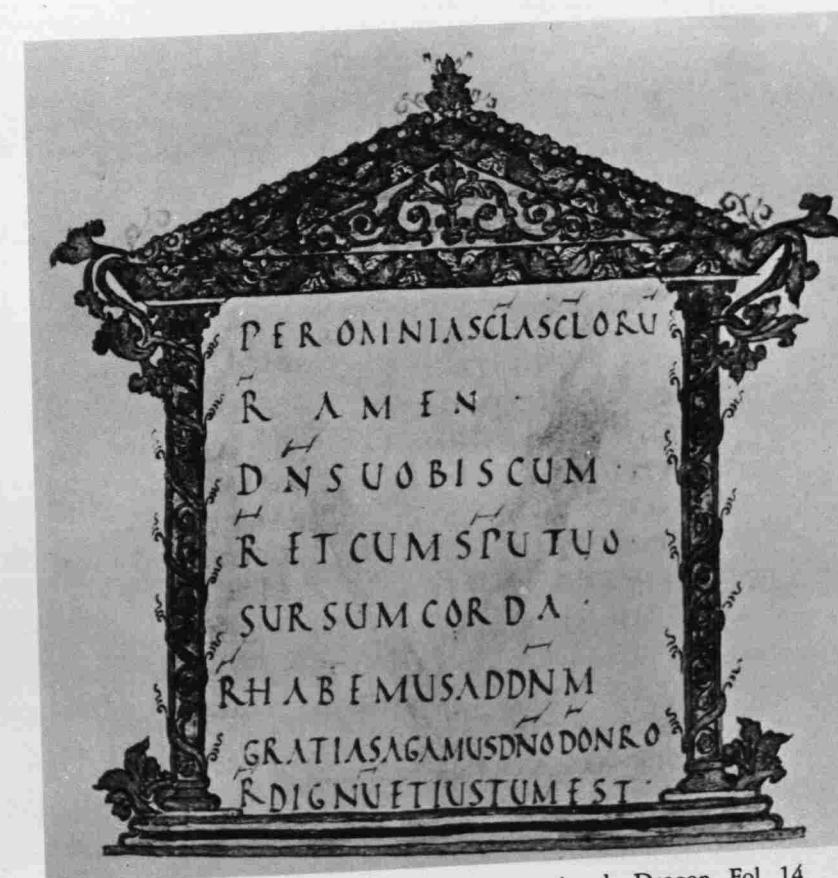 PER OMNIA SCL̅A SCL̅ORU̅
R̅ AMEN ·
DN̅S UOBISCUM ·
R̅ ET CUM SP̅U TUO ·
SURSUM COR DA ·
R̅ HABEMUS AD DN̅M
GRATIAS AGAMUS DN̅O DO̅ NRO
R̅ DIGNU̅ ET IUSTUM EST ·
Fol 14